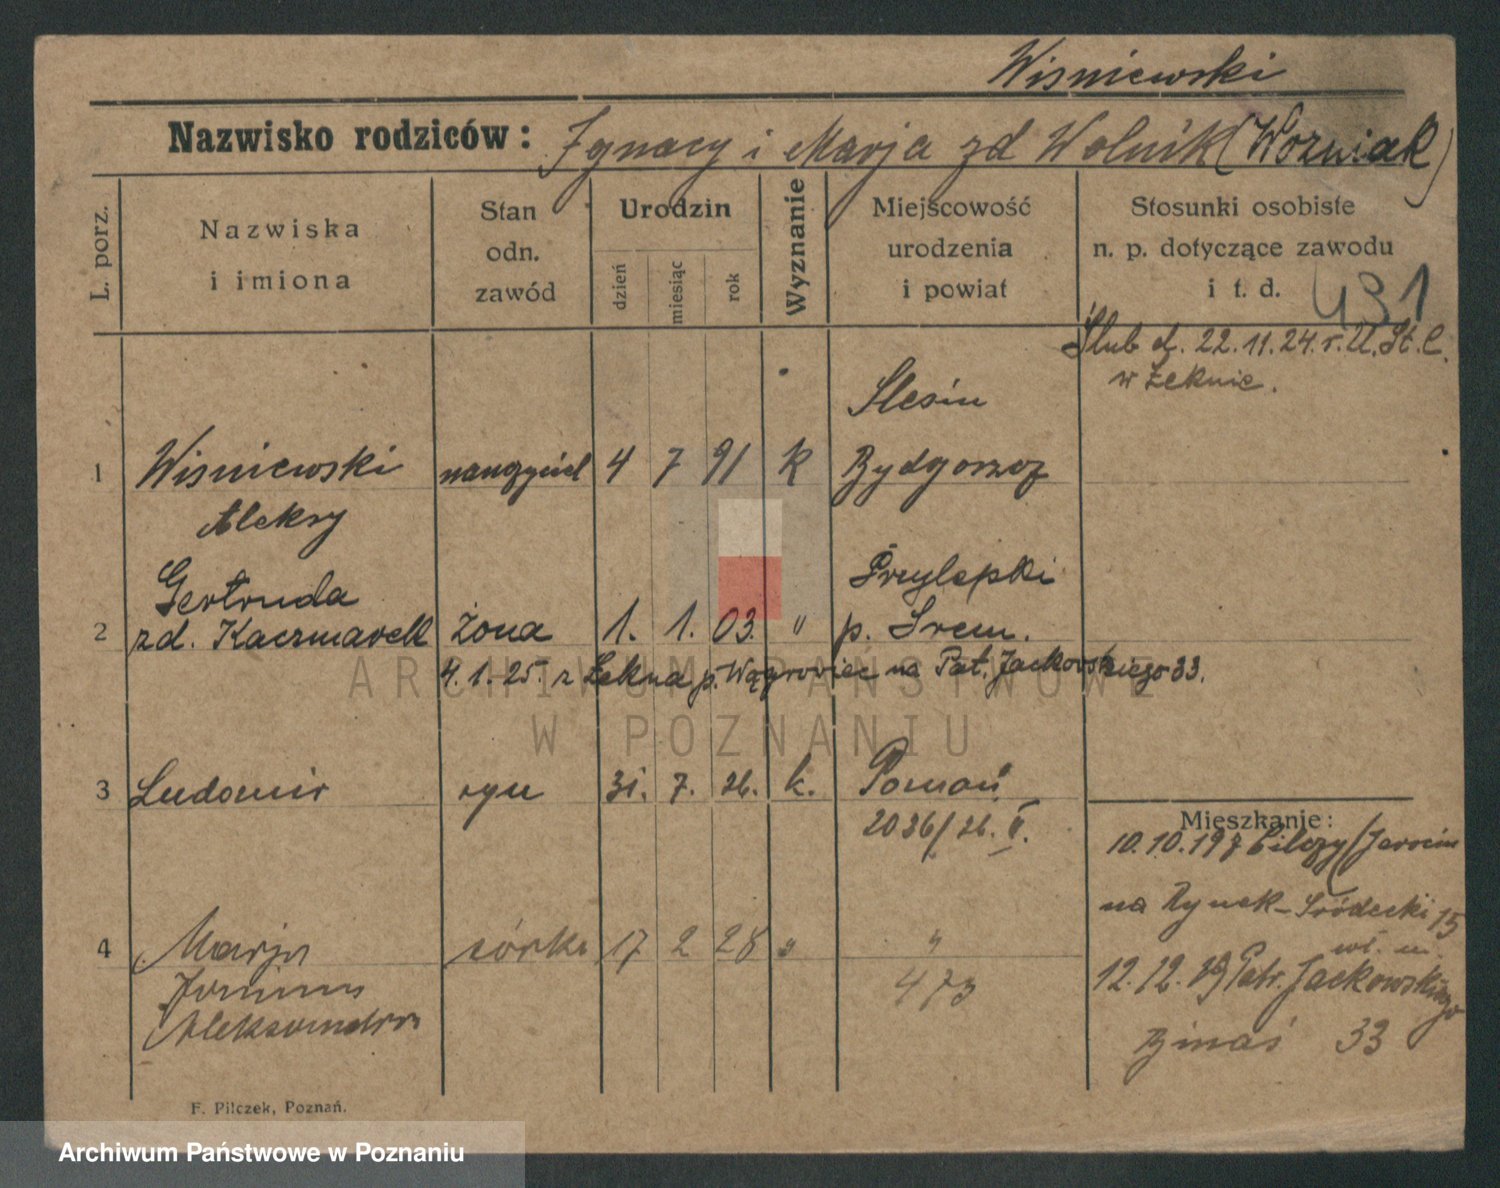 Wiśniewski
Nazwisko rodziców: Ignacy i Marja zd Wolnik (Woźniak)
L. porz.
Nazwiska
i imiona
Stan
odn.
zawód
Urodzin
dzień
miesiąc
rok
Wyznanie
Miejscowość
urodzenia
i powiat
Stosunki osobiste
n. p. dotyczące zawodu
i t. d.
431
Ślub d. 22.11.24. r. U. St. C.
w Łeknie.
Slesin
1 Wiśniewski nauczyciel 4 7 91 k Bydgoszcz
Aleksy
Gertruda Przylepki
2 zd. Kaczmarek żona 1. 1. 03. " p. Śrem.
4.1.25. z Łekna p. Wągrowiec na Pat. Jackowskiego 33.
3 Ludomir syn 31. 7. 26. k. Poznań
2036/26. II.
Mieszkanie:
10.10.19 (Jarocin
na Rynek-Śródecki 15
4 Marja córka 17 2 28 " "
473
Janina
Aleksandra
wł. m.
12.12. Patr. Jackowskiego
Binaś 33
F. Pilczek, Poznań.
ARCHIWUM PAŃSTWOWE
W POZNANIU
Archiwum Państwowe w Poznaniu